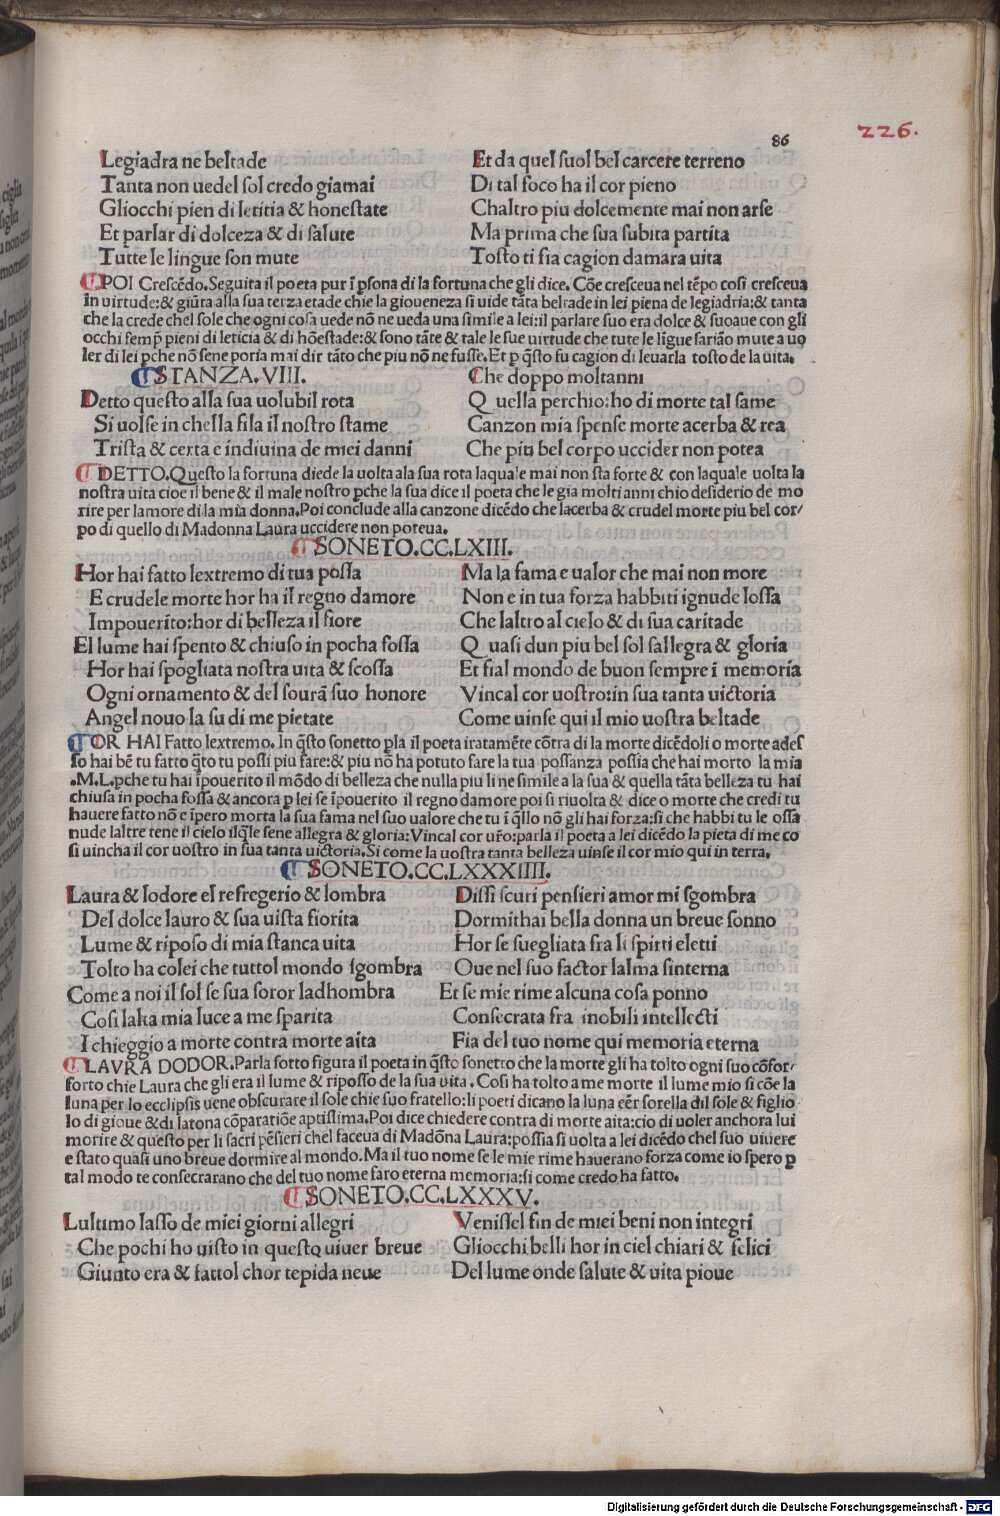 86
226.
Legiadra ne beltade
Tanta non uedel sol credo giamai
Gliocchi pien di letitia & honestate
Et parlar di dolceza & di salute
Tutte le lingue son mute
Et da quel suol bel carcere terreno
Di tal foco ha il cor pieno
Chaltro piu dolcemente mai non arse
Ma prima che sua subita partita
Tosto ti fia cagion damara uita
POI Crescēdo. Seguita il poeta pur ī psona di la fortuna che gli dice. Cōe cresceua nel tēpo cosi cresceua
In uirtude:& giūta alla sua terza etade chie la gioueneza si uide tāta beltade in lei piena de legiadria:& tanta
che la crede chel sole che ogni cosa uede nō ne ueda una simile a lei:il parlare suo era dolce & suoaue con gli
occhi semp pieni di leticia & di hōestade:& sono tāte & tale le sue uirtude che tute le līgue sariāo mute a uo
ler di lei pche nō sene poria mai dir tāto che piu nō ne fusse. Et p qsto fu cagion di leuarla tosto de la uita.
STANZA. VIII.
Detto questo alla sua uolubil rota
Si uolse in chella fila il nostro stame
Trista & certa e indiuina de miei danni
Che doppo moltanni
Q uella perchio:ho di morte tal fame
Canzon mia spense morte acerba & rea
Che piu bel corpo uccider non potea
DETTO. Questo la fortuna diede la uolta ala sua rota laquale mai non sta forte & con laquale uolta la
nostra uita cioe il bene & il male nostro pche la sua dice il poeta che le gia molti anni chio desiderio de mo
rire per lamore di la mia donna. Poi conclude alla canzone dicēdo che lacerba & crudel morte piu bel cor/
po di quello di Madonna Laura uccidere non poteua.
SONETO. CC. LXIII.
Hor hai fatto lextremo di tua possa
E crudele morte hor ha il regno damore
Impouerito:hor di belleza il fiore
El lume hai spento & chiuso in pocha fossa
Hor hai spogliata nostra uita & scossa
Ogni ornamento & del sourā suo honore
Angel nouo la su di me pietate
Ma la fama e ualor che mai non more
Non e in tua forza habbiti ignude lossa
Che laltro al cielo & di sua caritade
Q uasi dun piu bel sol sallegra & gloria
Et fial mondo de buon sempre ī memoria
Vincal cor uostro:in sua tanta uictoria
Come uinse qui il mio uostra beltade
OR HAI Fatto lextremo. In qsto sonetto pla il poeta iratamēte cōtra di la morte dicēdoli o morte ades
so hai bē tu fatto qto tu possi piu fare:& piu nō ha potuto fare la tua possanza possia che hai morto la mia
.M.L.pche tu hai īpouerito il mōdo di belleza che nulla piu li ne simile a la sua & quella tāta belleza tu hai
chiusa in pocha fossa & ancora p lei se īpouerito il regno damore poi si riuolta & dice o morte che credi tu
hauere fatto nō e īpero morta la sua fama nel suo ualore che tu ī qllo nō gli hai forza:si che habbi tu le ossa
nude laltre tene il cielo ilqle sene allegra & gloria:Vincal cor uro:parla il poeta a lei dicēdo la pieta di me co
si uincha il cor uostro in sua tanta uictoria. Si come la uostra tanta belleza uinse il cor mio qui in terra.
SONETO. CC. LXXXIIII.
Laura & lodore el refregerio & lombra
Del dolce lauro & sua uista fiorita
Lume & riposo di mia stanca uita
Tolto ha colei che tuttol mondo sgombra
Come a noi il sol se sua soror ladhombra
Cosi lalta mia luce a me sparita
I chieggio a morte contra morte aita
Dissi scuri pensieri amor mi sgombra
Dormithai bella donna un breue sonno
Hor se suegliata fra li spirti eletti
Oue nel suo factor lalma sinterna
Et se mie rime alcuna cosa ponno
Consecrata fra inobili intellecti
Fia del tuo nome qui memoria eterna
LAVRA DODOR. Parla sotto figura il poeta in qsto sonetro che la morte gli ha tolto ogni suo cōfor/
forto chie Laura che gli era il lume & riposso de la sua uita. Cosi ha tolto a me morte il lume mio si cōe la
luna per lo ecclipsis uene obscurare il sole chie suo fratello:li poeti dicano la luna eēr sorella dil sole & figlio
lo di gioue & di latona cōparatiōe aptissima. Poi dice chiedere contra di morte aita:cio di uoler anchora lui
morire & questo per li sacri pēsieri chel faceua di Madōna Laura:possia si uolta a lei dicēdo chel suo uiuere
e stato quasi uno breue dormire al mondo. Ma il tuo nome se le mie rime hauerano forza come io spero p
tal modo te consecrarano che del tuo nome faro eterna memoria:si come credo ha fatto.
SONETO. CC. LXXXV.
Lultimo lasso de miei giorni allegri
Che pochi ho uisto in questo uiuer breue
Giunto era & fattol chor tepida neue
Venissel fin de miei beni non integri
Gliocchi belli hor in ciel chiari & felici
Del lume onde salute & uita pioue
Digitalisierung gefördert durch die Deutsche Forschungsgemeinschaft - DFG